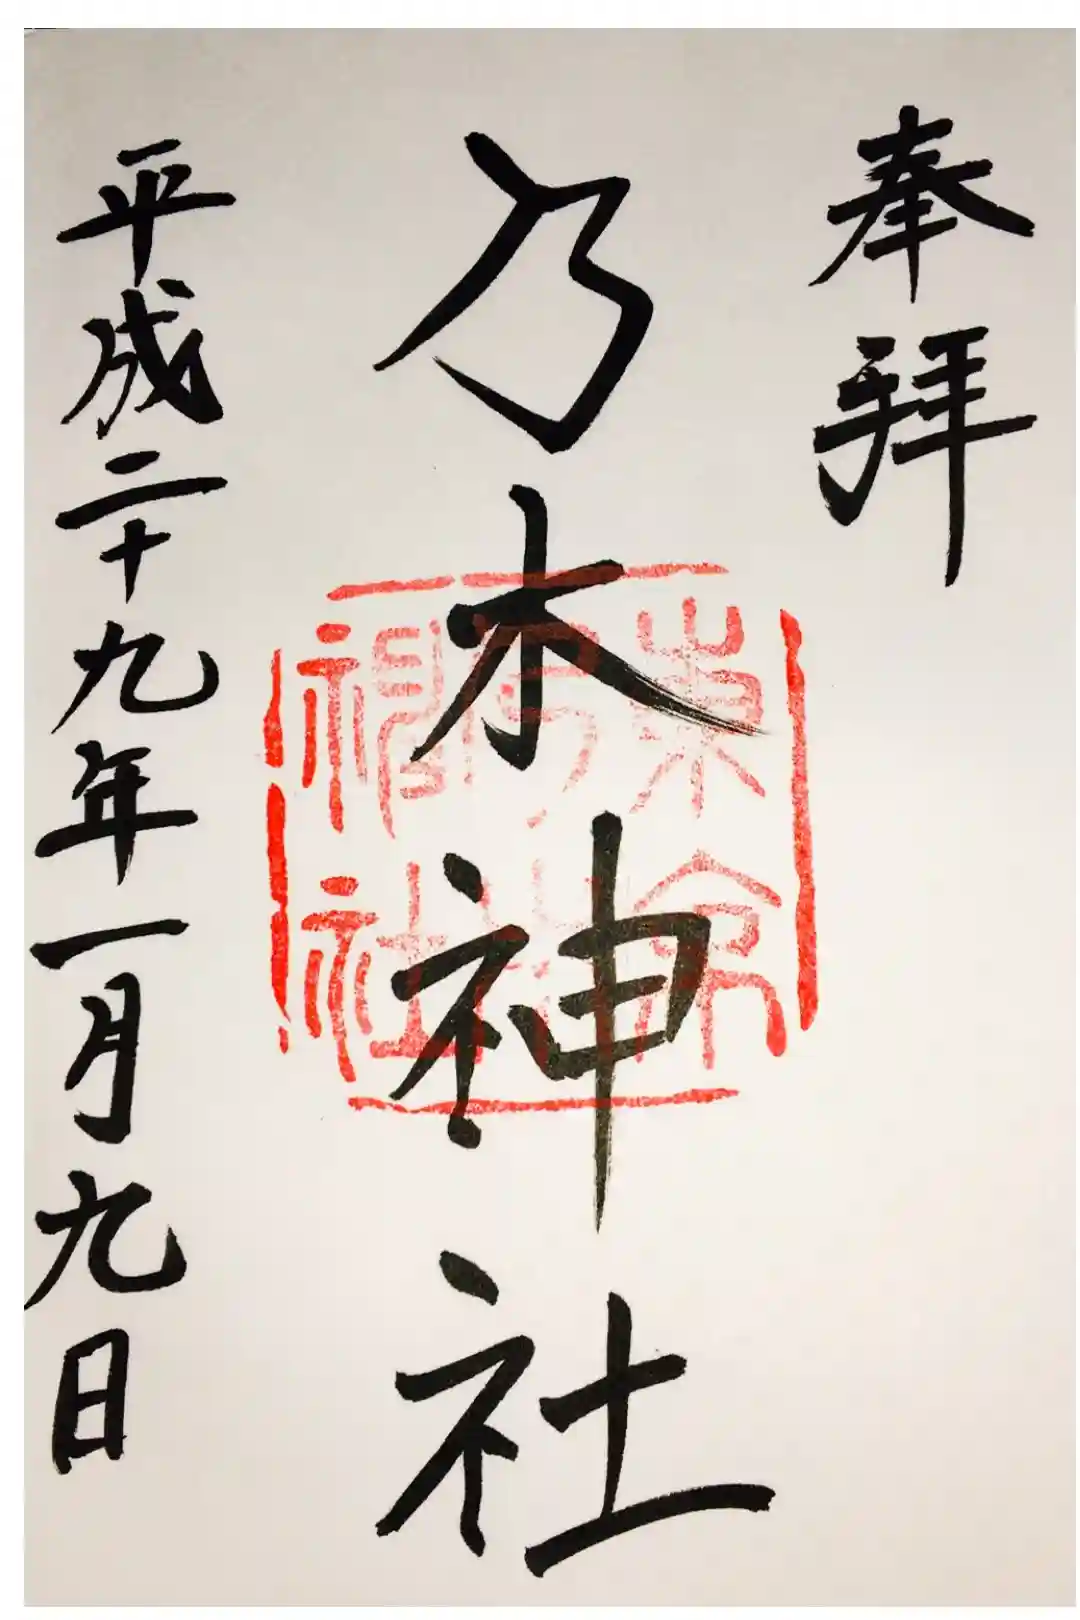 奉拝
乃木神社
平成二十九年一月九日
東京
乃木
神社